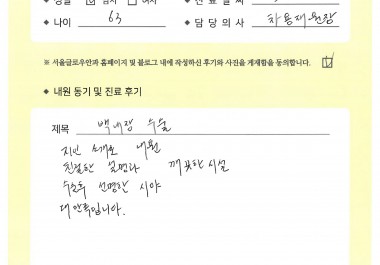 성별 ☑ 남자 □ 여자
◆ 나이 63
◆ 담당의사 차용재 원장
※ 서울글로우안과 홈페이지 및 블로그 내에 작성하신 후기와 사진을 게재함을 동의합니다. ☑
◆ 내원 동기 및 진료 후기
제목 백내장 수술
지인 소개로 내원
친절한 설명과 깨끗한 시설
수술후 선명한 시야
대만족입니다.